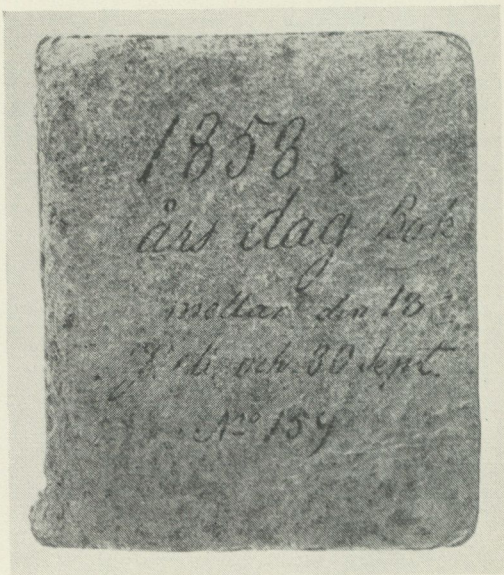 1858.
års dag Bok
mellan den 13
och 30 Sept
No 159